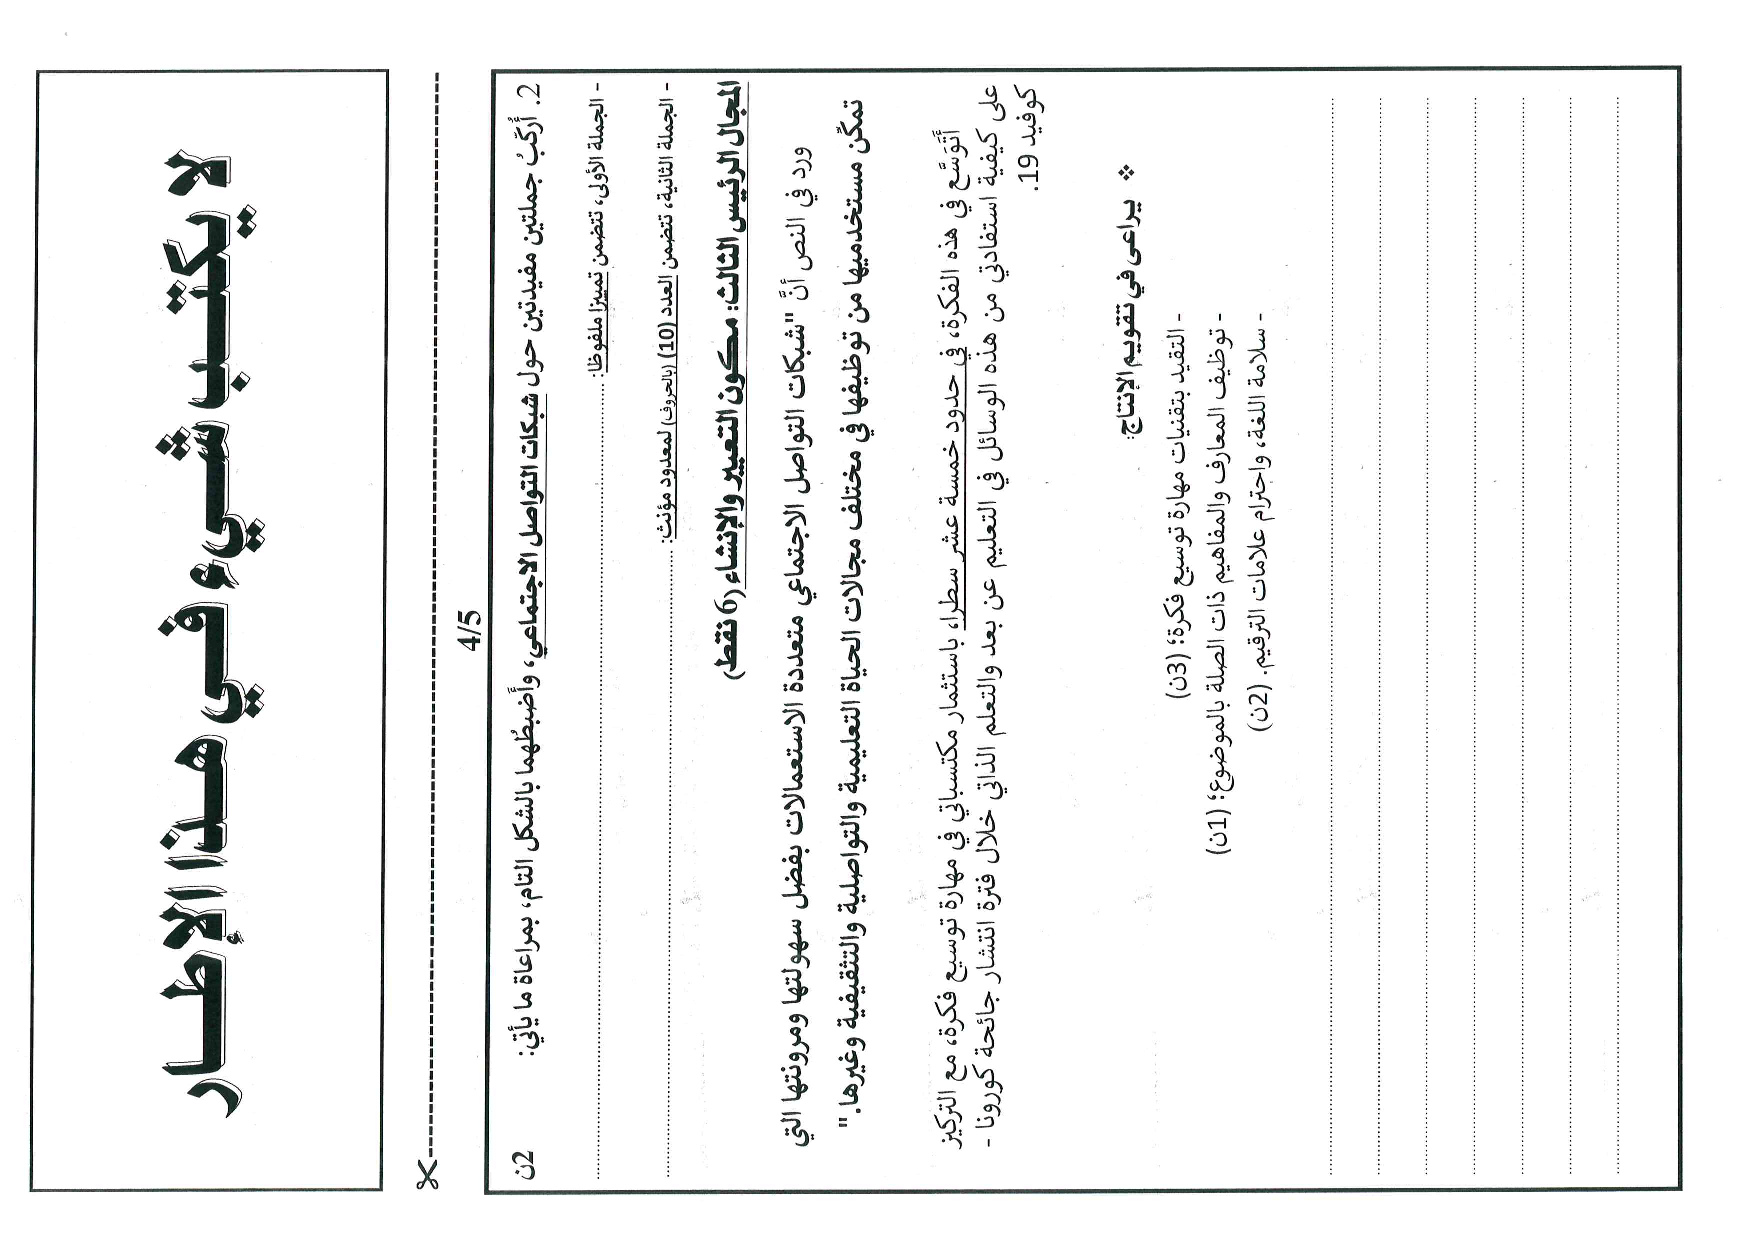 لا يكتب شيء في هذا الإطار
4/5
2. أركّبُ جملتين مفيدتين حول شبكات التواصل الاجتماعي، وأَضبطُهما بالشكل التام، بمراعاة ما يأتي: 2ن
- الجملة الأولى، تتضمن تمييزا ملفوظا:
- الجملة الثانية، تتضمن العدد (10) (بالحروف) لمعدود مؤنث:
المجال الرئيس الثالث: مكون التعبير والإنشاء (6 نقط)
ورد في النص أنَّ "شبكات التواصل الاجتماعي متعددة الاستعمالات بفضل سهولتها ومرونتها التي
تمكّن مستخدميها من توظيفها في مختلف مجالات الحياة التعليمية والتواصلية والتثقيفية وغيرها."
أَتَوَسَّع في هذه الفكرة، في حدود خمسة عشر سطرا، باستثمار مكتسباتي في مهارة توسيع فكرة، مع التركيز
على كيفية استفادتي من هذه الوسائل في التعليم عن بعد والتعلم الذاتي خلال فترة انتشار جائحة كورونا -
كوفيد 19.
❖ يراعى في تقويم الإنتاج:
- التقيد بتقنيات مهارة توسيع فكرة؛ (3ن)
- توظيف المعارف والمفاهيم ذات الصلة بالموضوع؛ (1ن)
- سلامة اللغة، واحترام علامات الترقيم. (2ن)